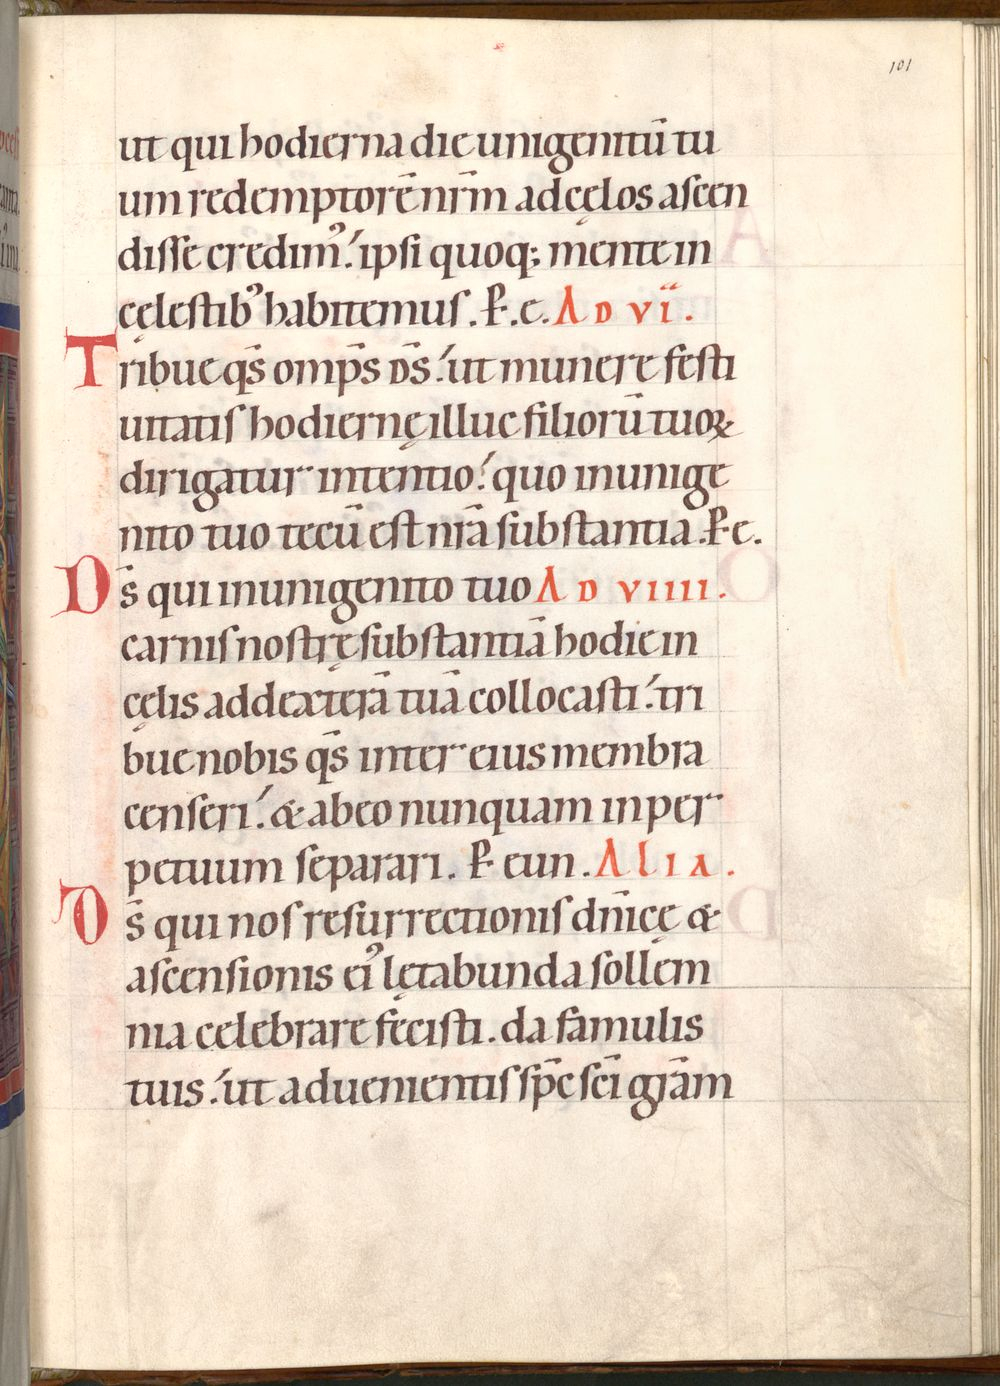 101
ut qui hodierna die unigenitū tu
um redemptorē nr̄m ad cęlos ascen
disse credimꝰ. ipsi quoq; mente in
cęlestibꝰ habitemus. P. e. AD VI.
Tribue qs̄ omps̄ ds̄. ut munere festi
uitatis hodiernę illuc filiorū tuoꝝ
dirigatur intentio. quo in unige
nito tuo tecū est nr̄a substantia. P. e.
Ds̄ qui in unigenito tuo AD VIIII.
carnis nostrę substantiā hodie in
cęlis ad dexterā tuā collocasti. tri
bue nobis qs̄ inter eius membra
censeri. & ab eo nunquam in per
petuum separari. P. eun. ALIA.
Ds̄ qui nos resurrectionis dn̄icę &
ascensionis eiꝰ lętabunda sollem
nia celebrare fecisti. da famulis
tuis. ut aduenientis sp̄c sc̄i gr̄am